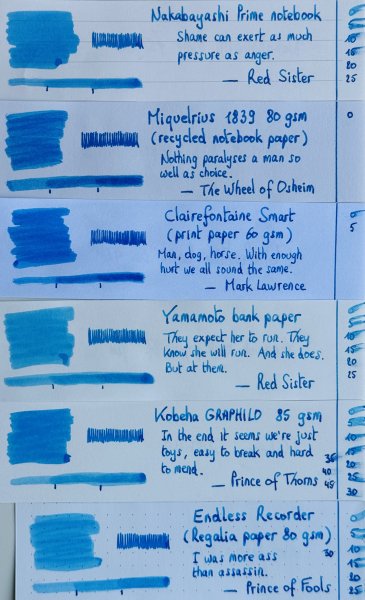 Nakabayashi Prime notebook
Shame can exert as much
pressure as anger.
— Red Sister
0
5
10
15
20
25
Miquelrius 1839 80 gsm
(recycled notebook paper)
Nothing paralyses a man so
well as choice.
— The Wheel of Osheim
0
Clairefontaine Smart
(print paper 60 gsm)
Man, dog, horse. With enough
hurt we all sound the same.
— Mark Lawrence
0
5
Yamamoto bank paper
They expect her to run. They
know she will run. And she does.
But at them.
— Red Sister
5
10
15
20
25
Kobeha GRAPHILO 85 gsm
In the end it seems we're just
toys, easy to break and hard
to mend.
— Prince of Thorns
5
10
20
25
30
35
40
45
Endless Recorder
(Regalia paper 80 gsm)
I was more ass
than assassin.
— Prince of Fools
0
10
15
20
25
30